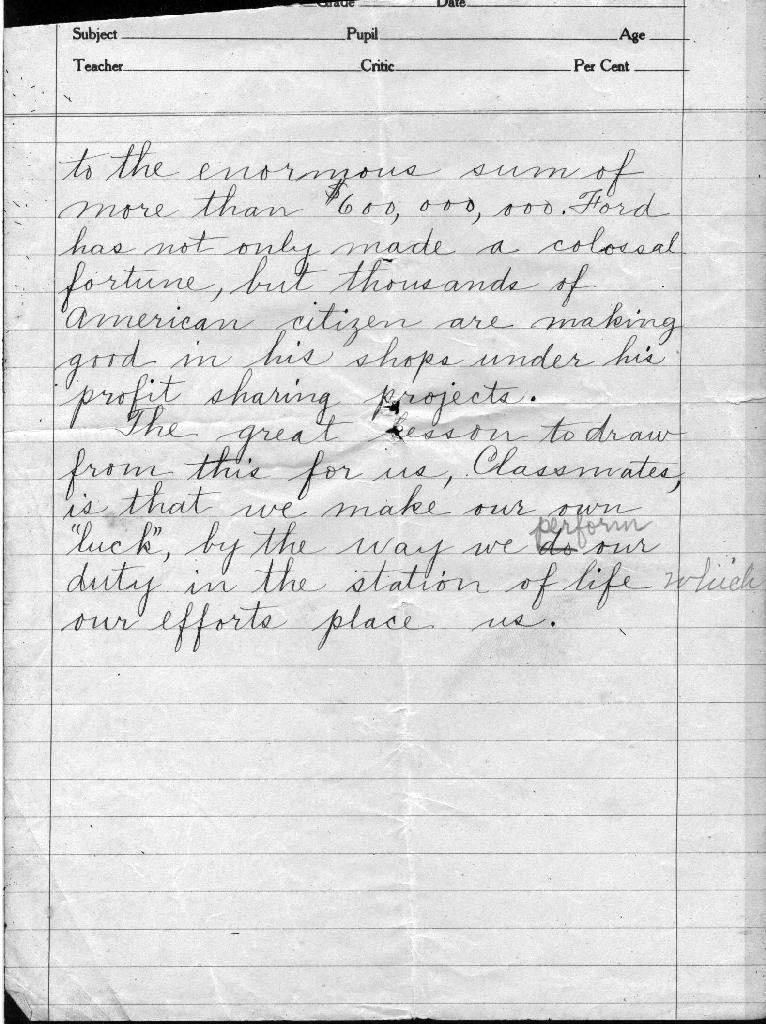 Grade Date
Subject Pupil Age
Teacher Critic Per Cent
to the enormous sum of
more than $600,000,000. Ford
has not only made a colossal
fortune, but thousands of
American citizen are making
good in his shops under his
profit sharing projects.
The great lesson to draw
from this for us, Classmates,
is that we make our own
"luck", by the way we do perform our
duty in the station of life which
our efforts place us.